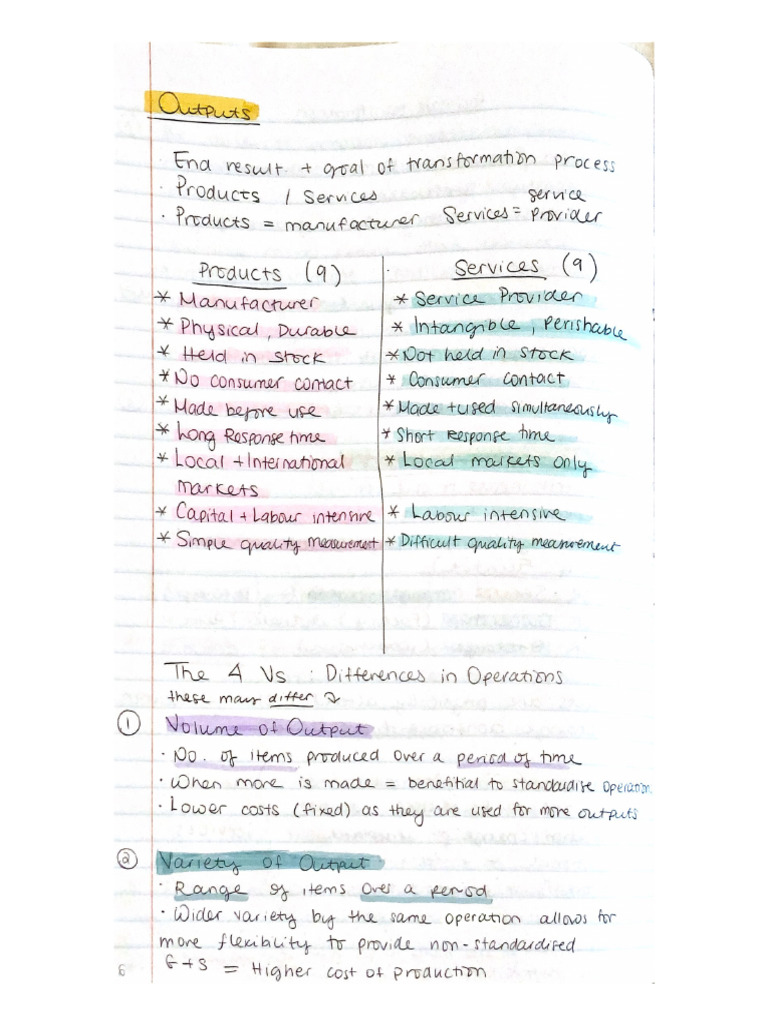 Outputs
· End result + goal of transformation process
· Products / Services
· Products = manufacturer Services = service provider
Products (9)
* Manufacturer
* Physical, Durable
* Held in stock
* No consumer contact
* Made before use
* Long Response time
* Local + International
markets
* Capital + Labour intensive
* Simple quality measurement
Services (9)
* Service Provider
* Intangible, Perishable
* Not held in stock
* Consumer contact
* Made + used simultaneously
* Short response time
* Local markets only
* Labour intensive
* Difficult quality measurement
The 4 Vs : Differences in Operations
these may differ ↓
① Volume of Output
· No. of items produced over a period of time
· When more is made = benefitial to standardise operation
· Lower costs (fixed) as they are used for more outputs
② Variety of Output
· Range of items over a period
· Wider variety by the same operation allows for
more flexiblity to provide non-standardised
G+S = Higher cost of production
6